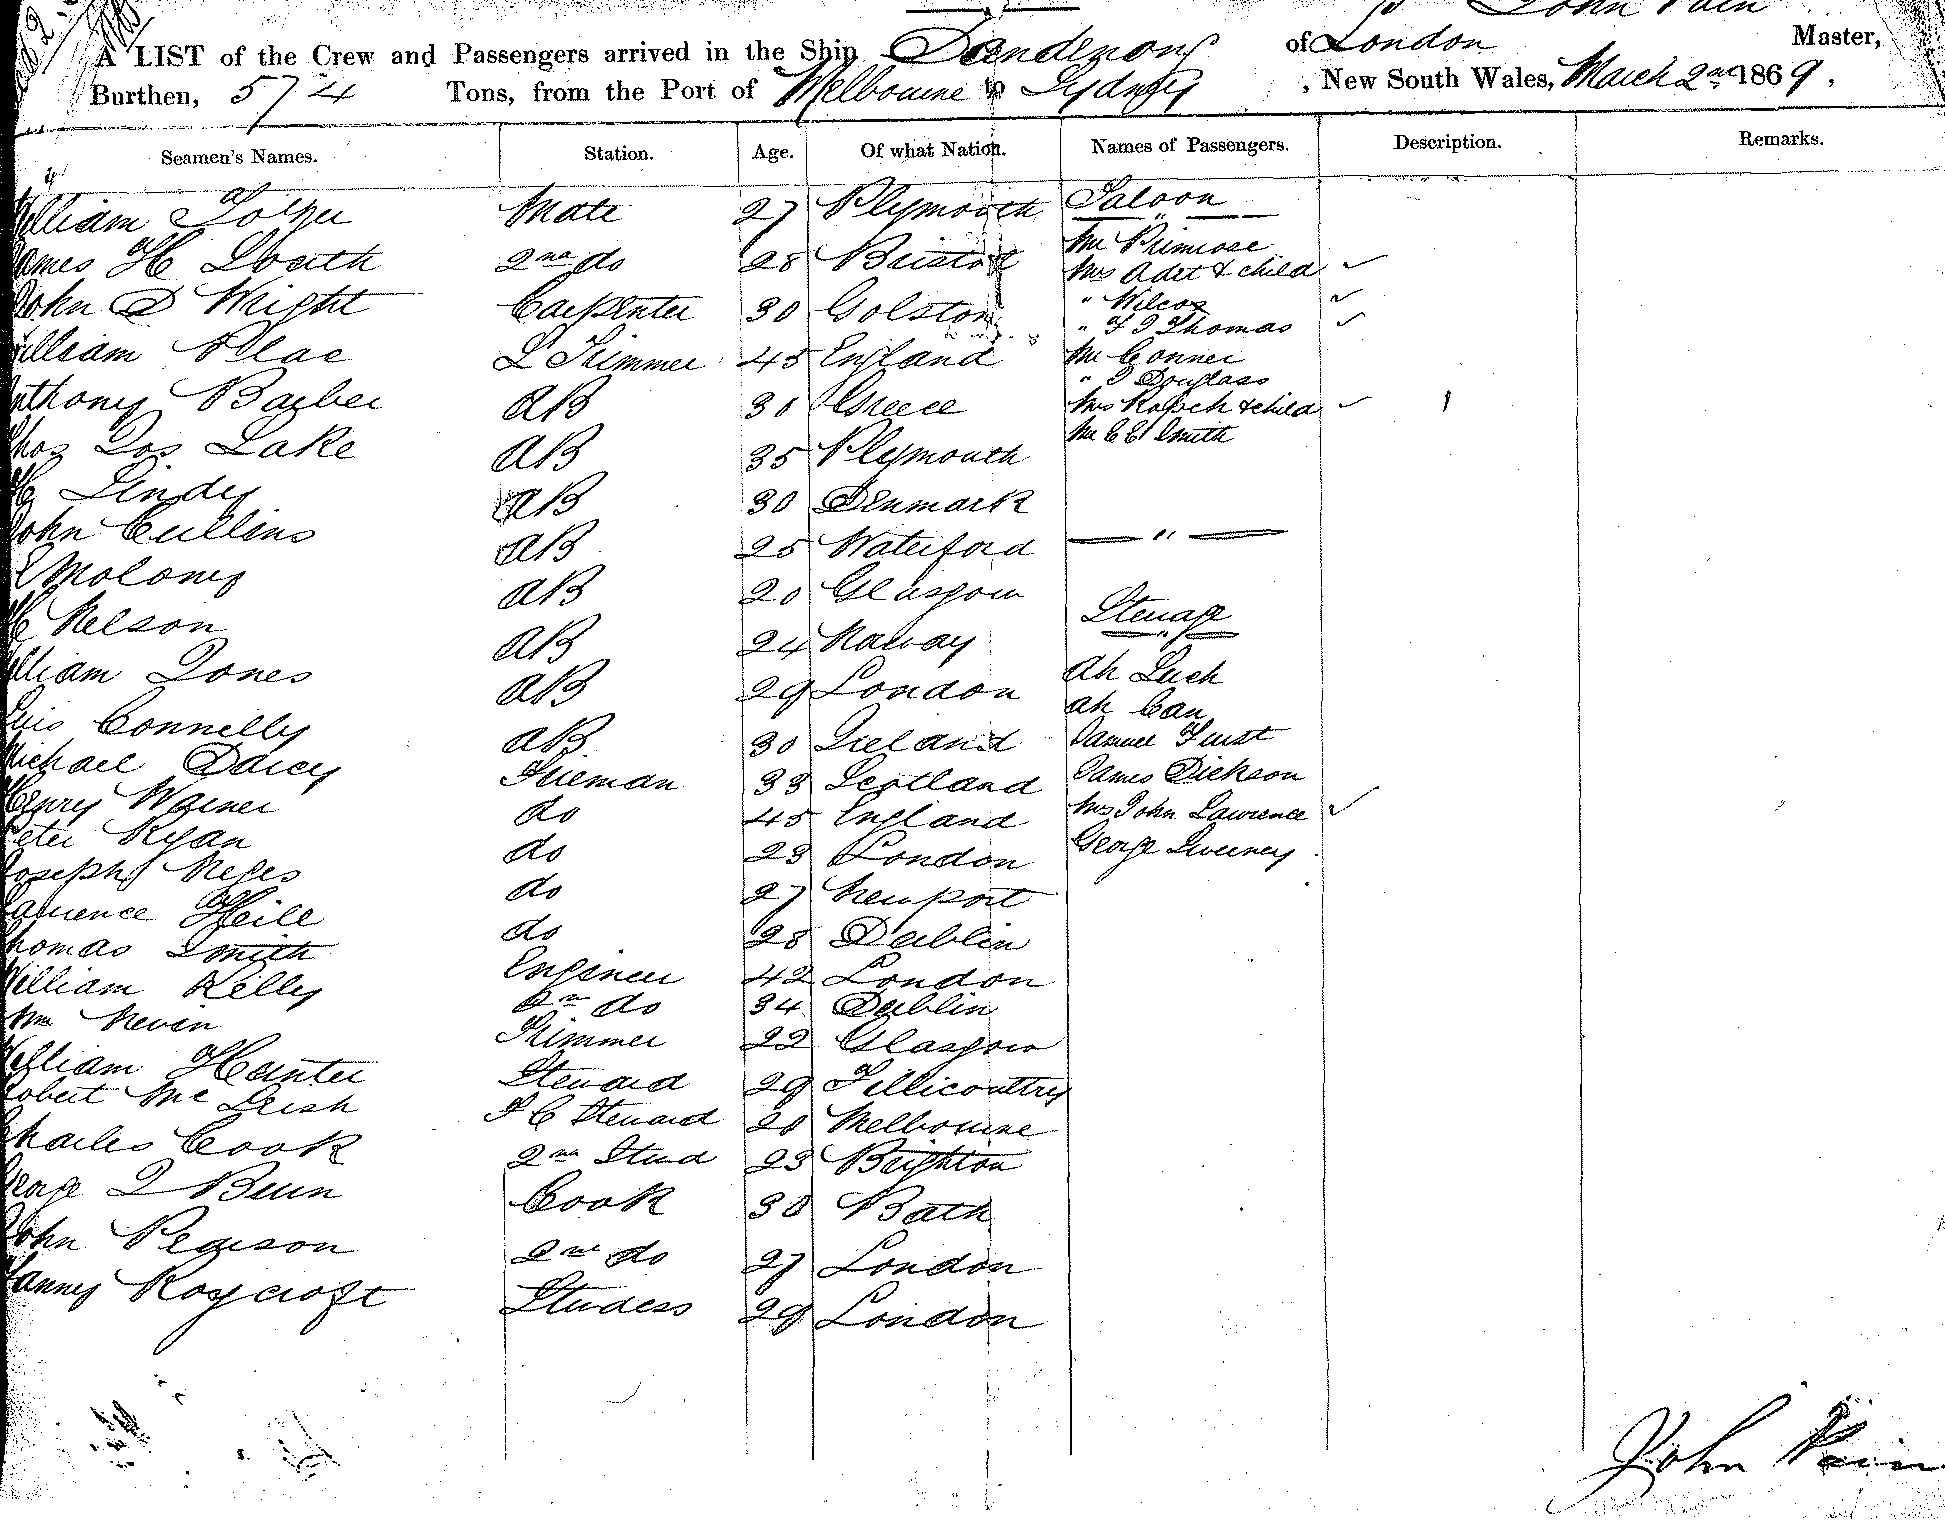 John Pain
A LIST of the Crew and Passengers arrived in the Ship Dandenong of London Master,
Burthen, 574 Tons, from the Port of Melbourne to Sydney, New South Wales, March 2nd 1869.
Seamen's Names. Station. Age. Of what Nation. Names of Passengers. Description. Remarks.
William Mate 27 Plymouth
James H South 2nd do 28 Bristol
John D Wright Carpenter 30 Golston
William L Trimmer 45 England
Anthony Barber AB 30 Greece
Thos Jos Lake AB 35 Plymouth
H Lindy AB 30 Denmark
John Cullins AB 25 Waterford
Molony AB 20 Glasgow
H Nelson AB 24 Norway
William Jones AB 29 London
Connelly AB 30 Ireland
Michael Darcy Fireman 33 Scotland
Henry Warner do 45 England
Peter Ryan do 23 London
Joseph do 27 Newport
Laurence Heile do 28 Dublin
Thomas Smith Engineer 42 London
William Kelly 2nd do 34 Dublin
Wm Nevin Trimmer 22 Glasgow
William Hunter Steward 29 Tillicoultry
Robert Mc Leish F C Steward 20 Melbourne
Charles Cook 2nd Stwd 23 Brighton
George J Bunn Cook 30 Bath
John Pearson 2nd do 27 London
Fanny Roycroft Studess 29 London
Saloon
Mr Primrose
Mrs Adet & child
" Wilcox
" F J Thomas
Mr Conner
" J Douglass
Mrs & child
Mr C C Smith
Steerage
Ah Luch
Ah Can
Samuel Furst
James Dickson
Mrs John Lawrence
George Sweeney
John Pain